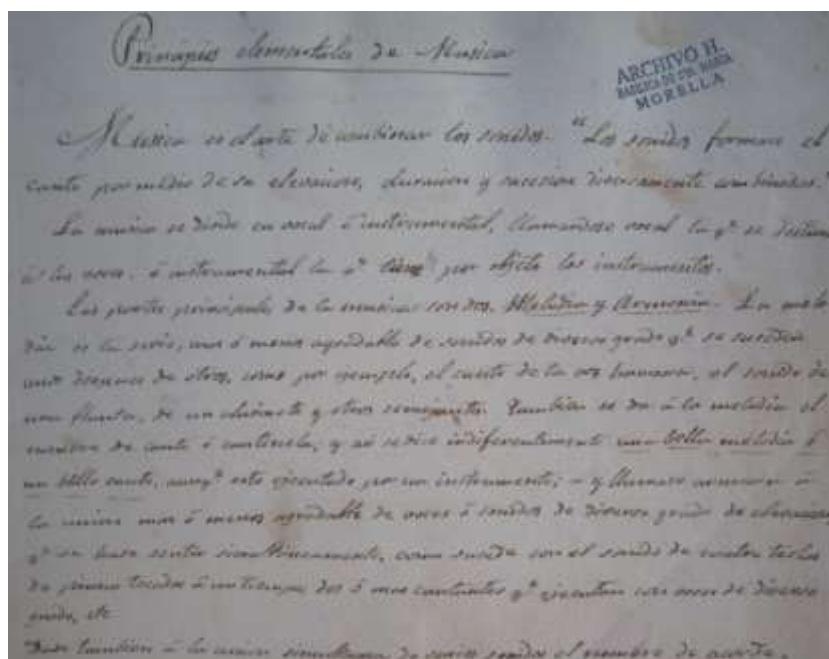 Principios elementales de Musica
ARCHIVO H.
BASILICA DE STA. MARIA
MORELLA
Musica es el arte de combinar los sonidos. "Los sonidos forman el
canto por medio de su elevacion, duracion y sucesion diversamente combinados."
La musica se divide en vocal é instrumental, llamandose vocal la q.e se destina
à las voces, é instrumental la q.e tiene por objeto los instrumentos.
Las partes principales de la musica son dos, Melodia y Armonia. La melo
dia es la serie, mas ó menos agradable de sonidos de diverso grado q.e se suceden
unos despues de otros, como por ejemplo, el canto de la voz humana, el sonido de
una flauta, de un clarinete y otros semejantes. Tambien se da à la melodia el
nombre de canto ó cantinela, y asi se dice indiferentemente una bella melodia ó
un bello canto, aunq.e este ejecutado por un instrumento; - y llamase armonia à
la union mas ó menos agradable de voces ó sonidos de diverso grado de elevacion,
q.e se hace sentir simultáneamente, como sucede con el sonido de cuatro teclas
de piano tocadas à un tiempo, dos ó mas cantantes q.e ejecutan con voces de diverso
grado, etc
Dase tambien à la union simultanea de varios sonidos el nombre de acorde,